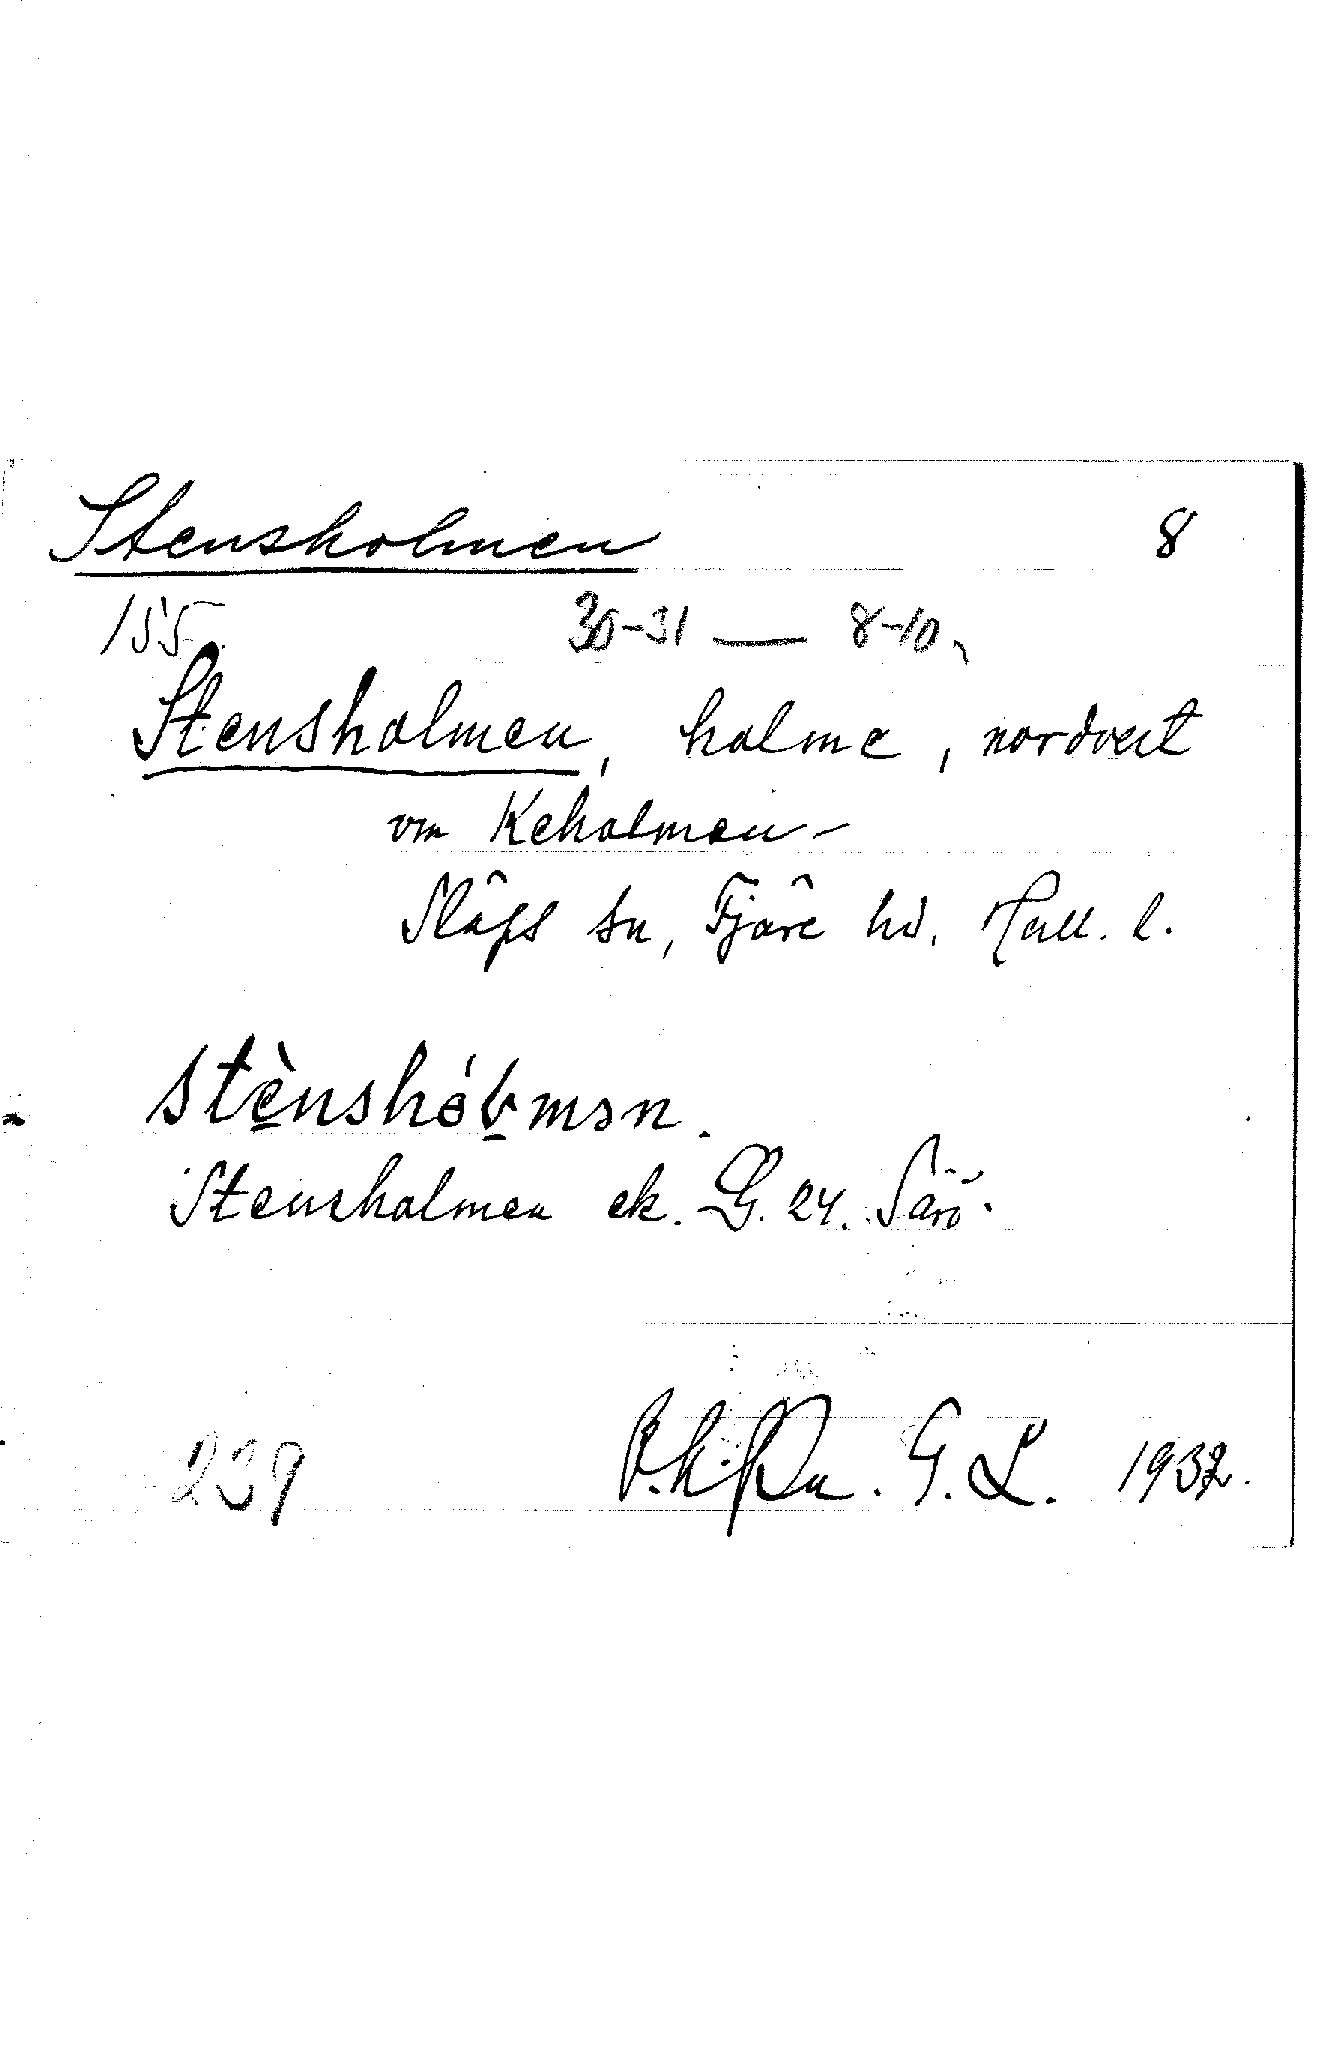 Stensholmen 8
155. 30-31 — 8-10.
Stensholmen, holme, nordvest
om Keholmen -
Släps sn, Fjäre hd. Hall. l.
stènshólmən.
Stensholmen ek. G. 24. Särö.
239 G. L. 1932.